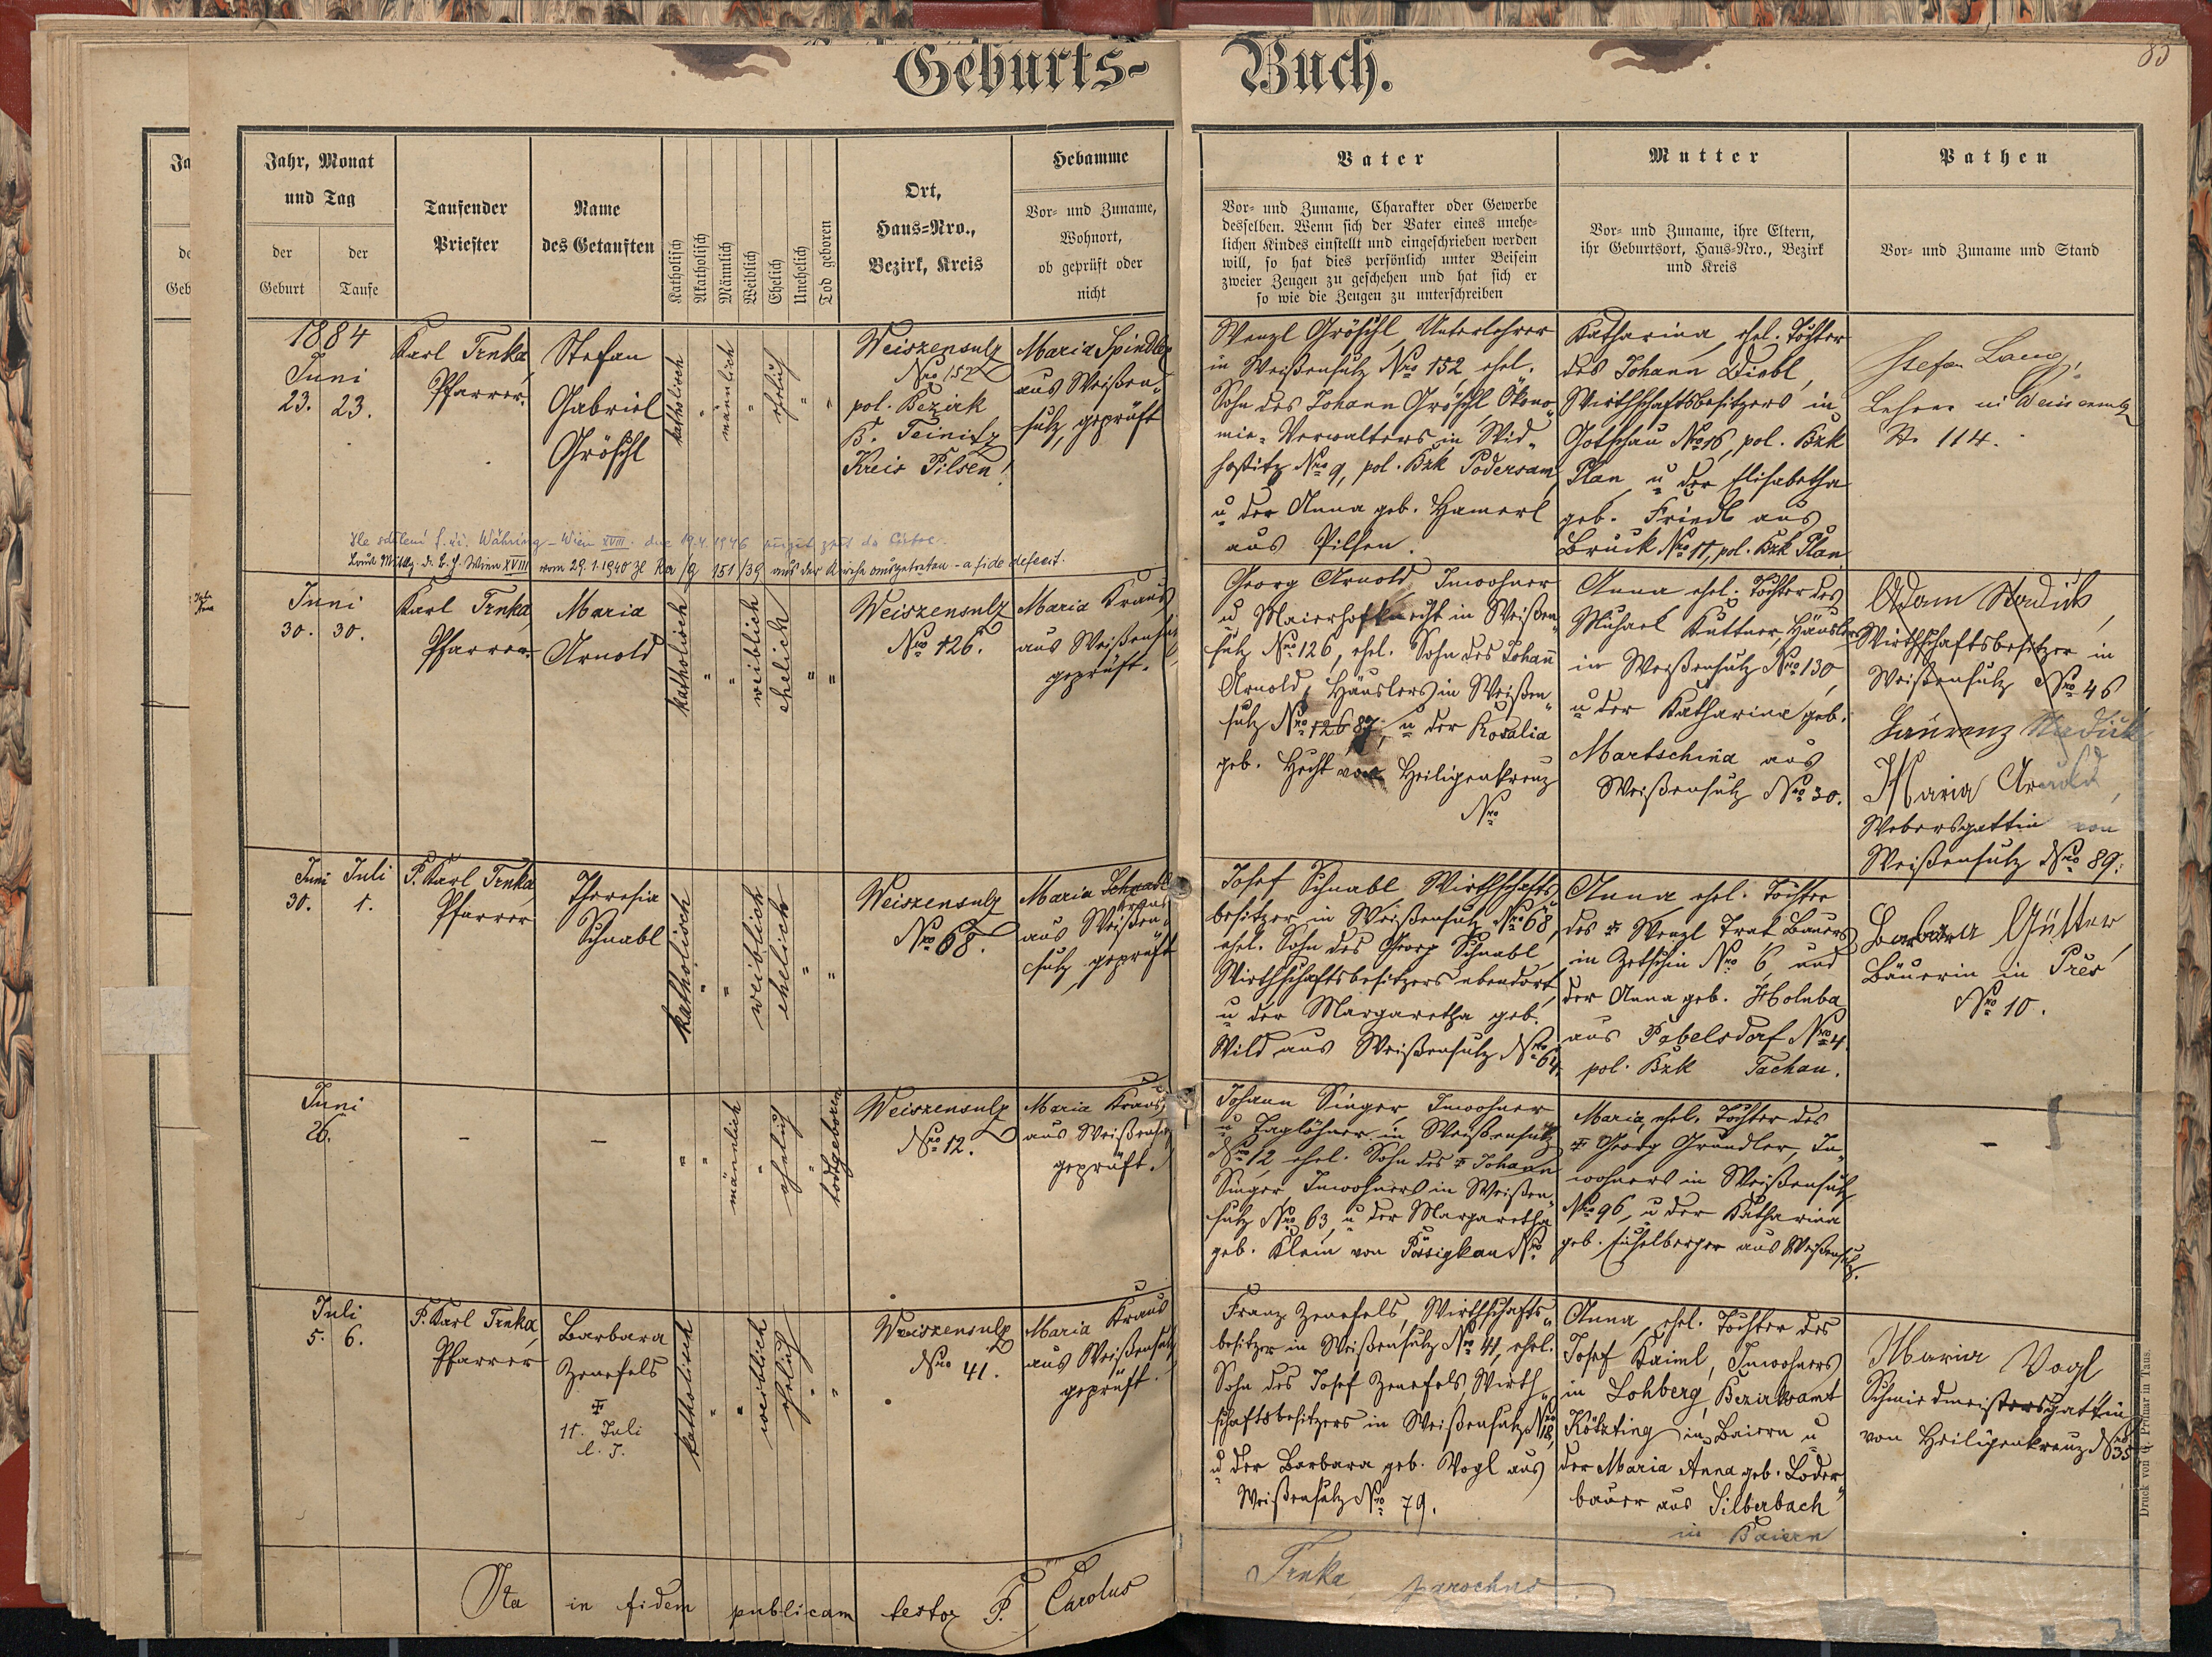 Geburts- Buch.
85
Jahr, Monat
und Tag
der Geburt
der Taufe
Taufender
Priester
Name
des Getauften
Katholisch
Akatholisch
Männlich
Weiblich
Ehelich
Unehelich
Tod geboren
Ort,
Haus-Nro.,
Bezirk, Kreis
Hebamme
Vor- und Zuname,
Wohnort,
ob geprüft oder
nicht
Vater
Vor- und Zuname, Charakter oder Gewerbe
desselben. Wenn sich der Vater eines unehe-
lichen Kindes einstellt und eingeschrieben werden
will, so hat dies persönlich unter Beisein
zweier Zeugen zu geschehen und hat sich er
so wie die Zeugen zu unterschreiben
Mutter
Vor- und Zuname, ihre Eltern,
ihr Geburtsort, Haus-Nro., Bezirk
und Kreis
Pathen
Vor- und Zuname und Stand
1884
Juni
23. 23.
Karl Trnka,
Pfarrer.
Stefan
Gabriel
Gröschl
katholisch
"
männlich
"
ehelich
"
"
Weiszensulz
Nro 152
pol. Bezirk
B. Teinitz
Kreis Pilsen!
Maria Spindler
aus Weißen-
sulz, geprüft
Wenzl Gröschl, Unterlehrer
in Weißensulz Nro 152, ehel.
Sohn des Johann Gröschl, Ökono-
mie-Verwalters in Wid-
hostitz Nro 9, pol. Bzk Podersam,
u der Anna geb. Hamerl
aus Pilsen.
Katharina, ehel. Tochter
des Johann Diebl,
Wirthschaftsbesitzers in
Gotschau Nro 16, pol. Bzk
Plan u der Elisabetha
geb. Friedl aus
Bruck Nro 11, pol. Bzk Plan
Stefan Lang,
Lehrer in Weissensulz
Nr. 114.
Dle sdělení f. ú. Währing - Wien XVIII. dne 19.4.1946 zpět do církve.
Laut Mittlg. d. B. H. Wien XVIII vom 29.1.1940 151/39 aus der Kirche ausgetreten - a fide defecit.
Juni
30. 30.
Karl Trnka,
Pfarrer.
Maria
Arnold
katholisch
"
"
weiblich
ehelich
"
"
Weiszensulz
Nro 126.
Maria Kraus
aus Weißensulz
geprüft.
Georg Arnold, Inwohner
u Maierhofknecht in Weißen-
sulz Nro 126, ehel. Sohn des Johann
Arnold, Häuslers in Weißen-
sulz Nro 126 87, u der Rosalia
geb. Hecht von Heiligenkreuz
Nro
Anna ehel. Tochter des
Michael Kuttner, Häuslers
in Weißensulz Nro 130,
u der Katharina geb.
Martschina aus
Weißensulz Nro 30.
Adam
Wirthschaftsbesitzer in
Weißensulz Nro 46
Laurenz
Maria Arnold,
Webersgattin von
Weißensulz Nro 89.
Juni Juli
30. 1.
P. Karl Trnka,
Pfarrer
Theresia
Schnabl
katholisch
"
"
weiblich
ehelich
"
"
Weiszensulz
Nro 68.
Maria Schnabl
Kraus
aus Weißen-
sulz, geprüft
Josef Schnabl Wirthschafts-
besitzer in Weißensulz Nro 68,
ehel. Sohn des Georg Schnabl,
Wirthschaftsbesitzers ebendort,
u der Margaretha geb.
Wild aus Weißensulz Nro 64.
Anna, ehel. Tochter
des Wenzl Trat Bauers
in Zetschin Nro 6, und
der Anna geb. Holuba
aus Pabelsdorf Nro 4.
pol. Bzk Tachau.
Barbara Gütter,
Bäuerin in Pres
Nro 10.
Juni
26.
-
-
"
"
männlich
"
ehelich
"
todtgeboren
Weiszensulz
Nro 12.
Maria Kraus,
aus Weißensulz
geprüft.
Johann Singer, Inwohner
u Taglöhner in Weißensulz
Nro 12 ehel. Sohn des Johann
Singer Inwohners in Weißen-
sulz Nro 63, u der Margaretha
geb. Klein von Pössigkau Nro
Maria, ehel. Tochter des
Georg Gründler, In-
wohners in Weißensulz
Nro 96, u der Katharina
geb. aus Weißensulz.
-
Juli
5. 6.
P. Karl Trnka,
Pfarrer
Barbara
Zenefels
11. Juli
l. J.
katholisch
"
"
weiblich
ehelich
"
"
Weiszensulz
Nro 41.
Maria Kraus
aus Weißensulz
geprüft.
Franz Zenefels, Wirthschafts-
besitzer in Weißensulz Nro 41, ehel.
Sohn des Josef Zenefels, Wirth-
schaftsbesitzers in Weißensulz Nro 18,
u der Barbara geb. Vogl aus
Weißensulz Nro 79.
Anna, ehel. Tochter des
Josef Kaiml, Inwohners
in Lohberg, Bezirksamt
Kötzting in Baiern u
der Maria Anna geb. Loder-
bauer aus Silberbach
in Baiern
Maria Vogl
Schmiedmeistersgattin
von Heiligenkreuz Nro 35
Ita in fidem publicam testor P. Carolus
Trnka parochus
Druck von G. Primar in Taus.